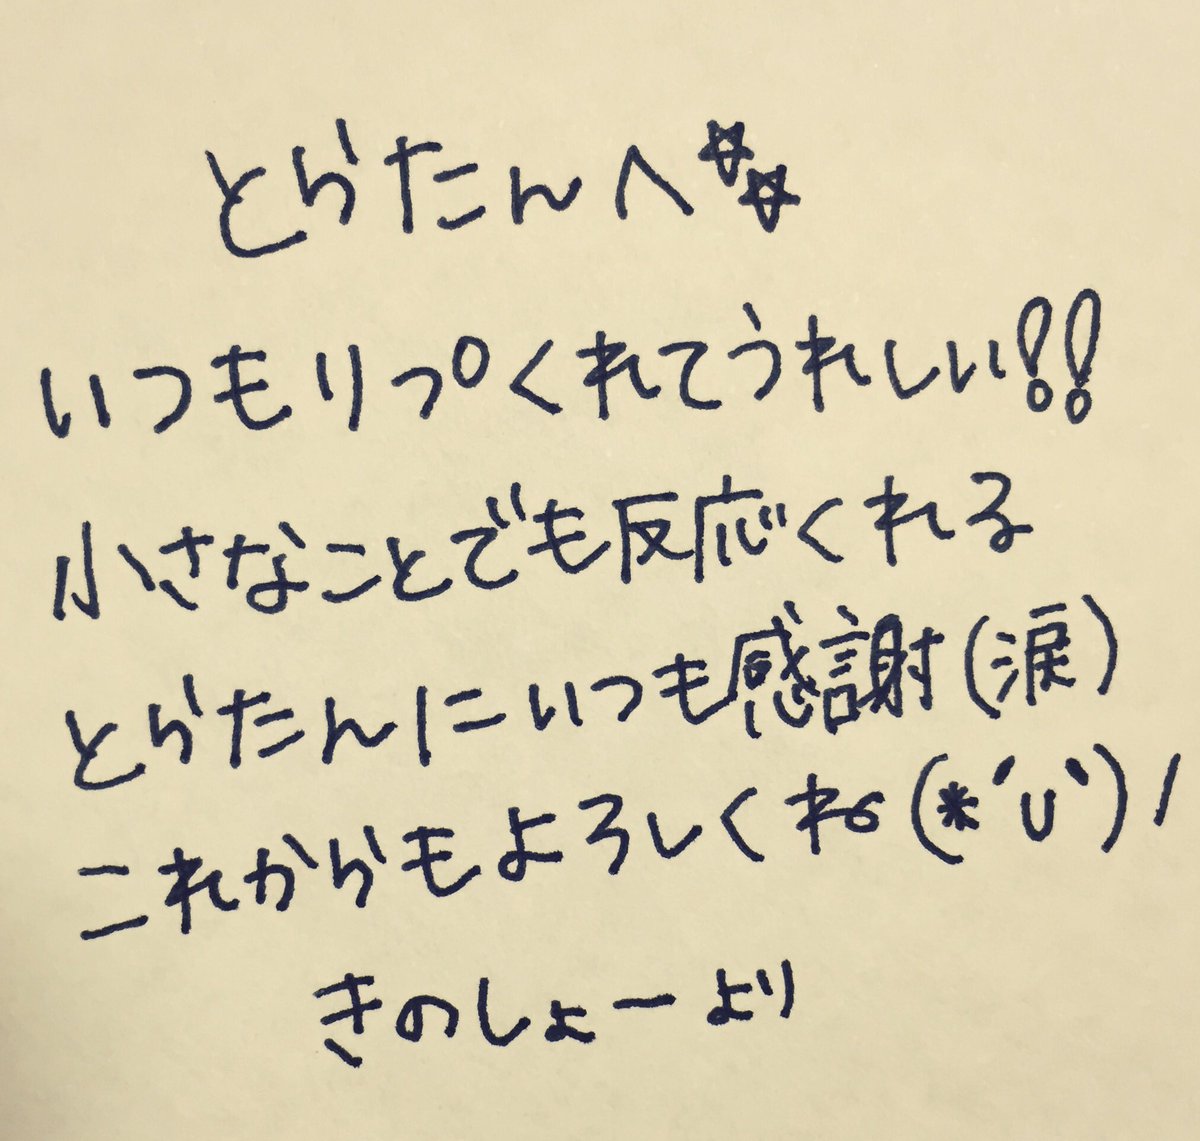 とらたんへ☆☆
いつもりっぷくれてうれしい!!
小さなことでも反応くれる
とらたんにいつも感謝(涙)
これからもよろしくね(*´∪`)ノ
きのしょーより